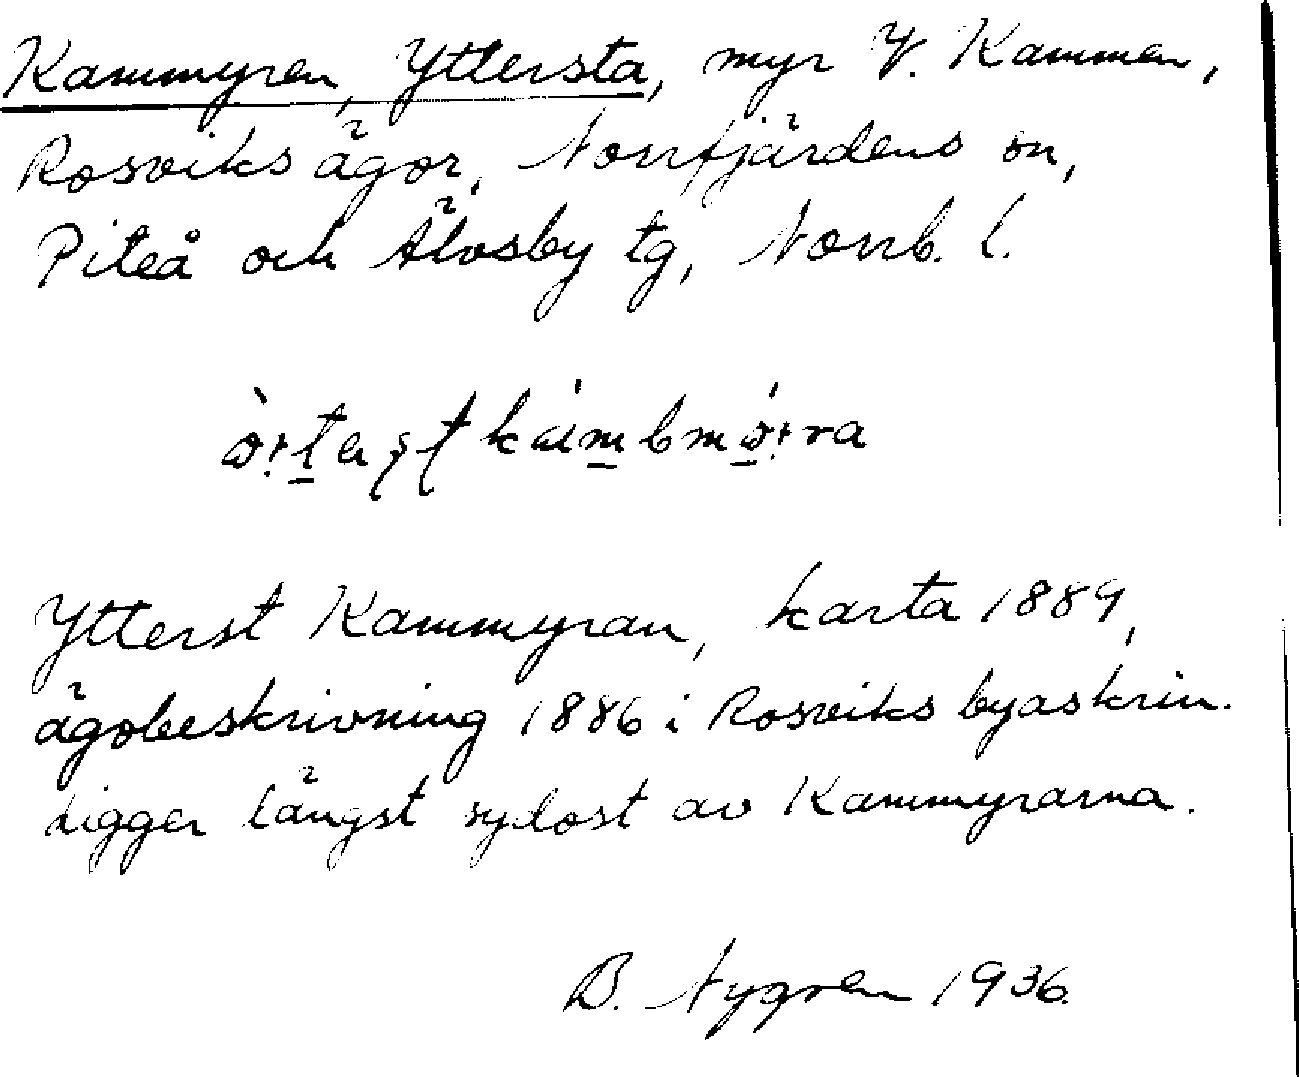 Kammyren, Yttersta, myr V. Kammen,
Rosviks ägor, Norrfjärdens sn,
Piteå och Älvsby tg, Norrb. l.
Ytterst Kammyran, karta 1889,
ägobeskrivning 1886 i Rosviks byaskrin.
Ligger längst sydost av Kammyrarna.
B. Nygren 1936.